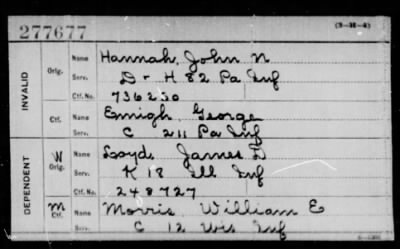 277677 (3-H-4)
INVALID
Orig. Name Hannah, John N
Serv. D - H 82 Pa Inf
Ctf. No. 736230
Ctf. Name Emigh, George
Serv. C 211 Pa Inf
DEPENDENT
W Orig. Name Loyd, James D
Serv. K 18 Ill Inf
Ctf. No. 248727
M Ctf. Name Morris, William E
Serv. C 12 Wis Inf